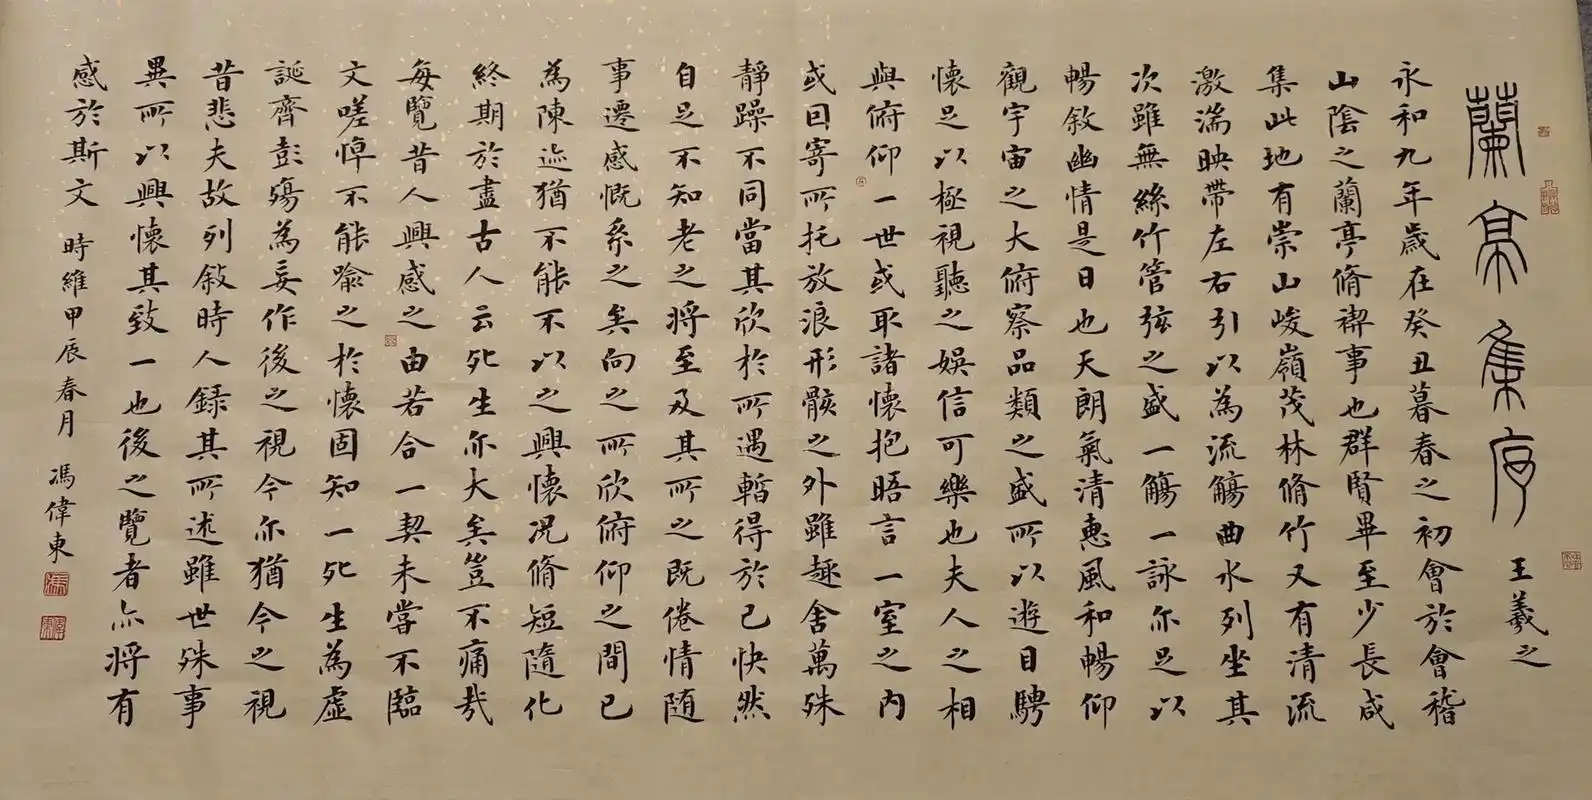 蘭亭集序 王羲之
永和九年歲在癸丑暮春之初會於會稽
山陰之蘭亭脩禊事也群賢畢至少長咸
集此地有崇山峻嶺茂林脩竹又有清流
激湍映帶左右引以為流觴曲水列坐其
次雖無絲竹管弦之盛一觴一詠亦足以
暢敘幽情是日也天朗氣清惠風和暢仰
觀宇宙之大俯察品類之盛所以遊目騁
懷足以極視聽之娛信可樂也夫人之相
與俯仰一世或取諸懷抱晤言一室之內
或因寄所托放浪形骸之外雖趣舍萬殊
靜躁不同當其欣於所遇暫得於己快然
自足不知老之將至及其所之既倦情隨
事遷感慨系之矣向之所欣俯仰之間已
為陳迹猶不能不以之興懷況脩短隨化
終期於盡古人云死生亦大矣豈不痛哉
每覽昔人興感之由若合一契未嘗不臨
文嗟悼不能喻之於懷固知一死生為虛
誕齊彭殤為妄作後之視今亦猶今之視
昔悲夫故列敘時人錄其所述雖世殊事
異所以興懷其致一也後之覽者亦將有
感於斯文 時維甲辰春月 馮偉東